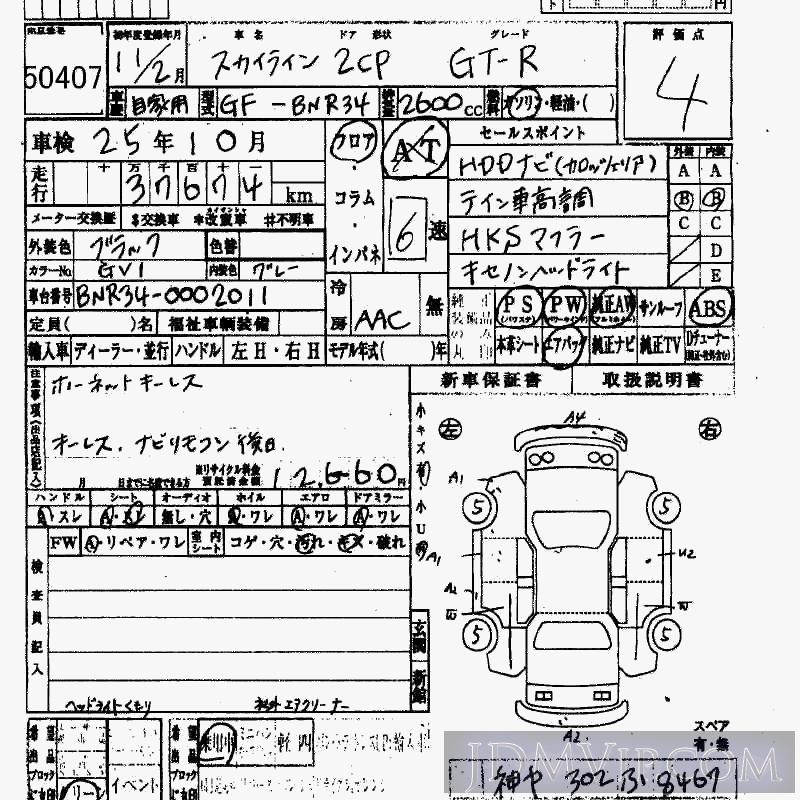 50407
初年度登録年月 車名 ドア 形状 グレード
11/2月 スカイライン 2CP GT-R
評価点
4
車歴 自家用 型式 GF-BNR34 排気量 2600cc 燃料 ガソリン・軽油・( )
車検 25年10月
走行 十 万 千 百 十 一
37674 km
メーター交換証 $交換車 *改ざん車 #不明車
外装色 ブラック 色替
カラーNo. GV1 内装色 グレー
車台番号 BNR34-0002011
定員( )名 福祉車輌装備
輸入車 ディーラー・並行 ハンドル 左H・右H モデル年式( )年
フロア・コラム・インパネ
AT
6速
冷房 AAC 無
セールスポイント
HDDナビ(カロッツェリア)
テイン車高調
HKSマフラー
キセノンヘッドライト
外装 内装
A A
B B
C C
D
E
純正装備品のみ丸印
PS (パワステ) PW (パワーウインド) 純正AW サンルーフ ABS
本革シート エアバック 純正ナビ 純正TV Dチューナー
新車保証書 取扱説明書
注意事項(出品店記入)
ホーネットキーレス
キーレス、ナビリモコン後日
月 日までに名義変更できる方
※リサイクル料金預託済金額 12,660円
ハンドル シート オーディオ ホイル エアロ ドアミラー
スレ 無し・穴 ワレ A・ワレ A・ワレ
FW A・リペア・ワレ 室内シート コゲ・穴・汚れ・キズ・破れ
検査員記入
ヘッドライトくもり 社外エアクリーナー
玄関 新館
小キズ有 小U有
左 右
A4
A1
5 5
A1 U2
A2
W W
5 5
A2
スペア
有・無
希望出品ブロック イベント
軽四
神中 302 ろ 8467
JDMVIP.COM